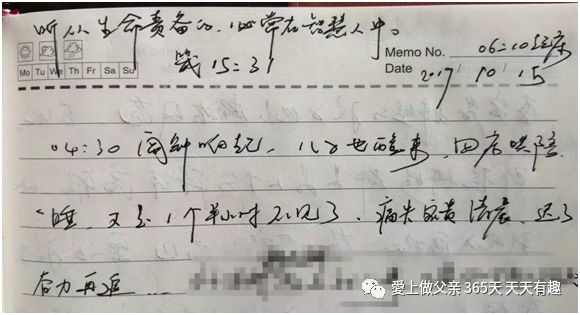 听从生命责备的.必常在智慧人中。
箴15:31
Mo Tu We Th Fr Sa Su
Memo No. 06:10起床
Date 2017/10/15
04:30 闹钟响起,儿子也醒来,回房哄陪
睡,又是1个半小时不见了,痛失宝贵清晨,迟了
奋力再追......
愛上做父亲 365天 天天有趣